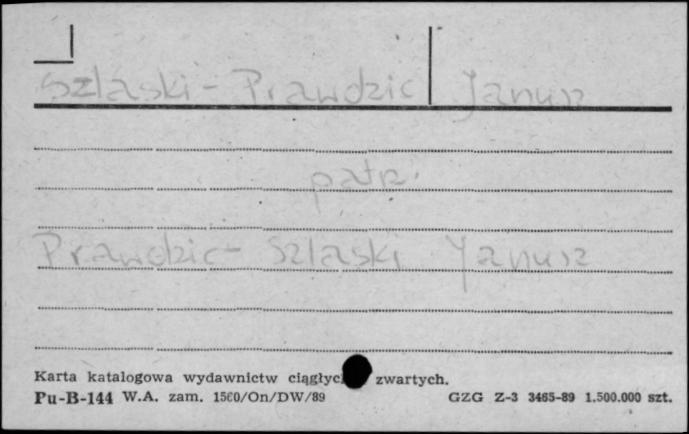 Szlaski - Prawdzic Janusz
patrz
Prawdzic - Szlaski Janusz
Karta katalogowa wydawnictw ciągłyc zwartych.
Pu-B-144 W.A. zam. 1560/On/DW/89 GZG Z-3 3465-89 1.500.000 szt.